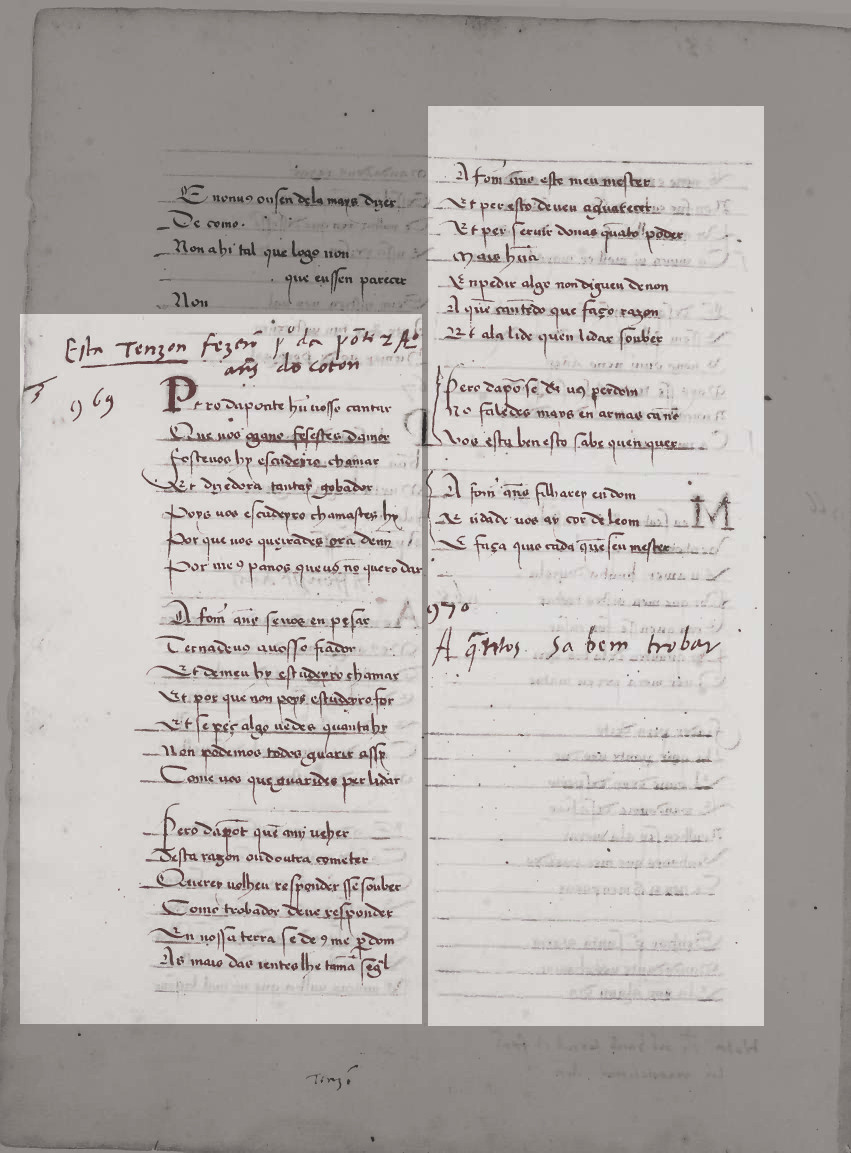 E non uꝯ ousen dela mays dizer
De como.
Non a hi tal que logo non
que eussen parecer
Non
Esta Tenzon fezerõ pº da põti z Aº
anr̃ do coton
969
Pero daponte hũ uosso cantar
Que uos ogano fesestes damor
Fostes uos hy escudeyro chamar
Et dizedora tantar̃ gobador
Poys uos escudeyro chamastes hy
Por que uos queixades ora demĩ
Por me9 panos que uꝯ nõ quero dar

A fom̃ anr̃ se uos en pesar
Ternadeuꝯ a uosso fiador
Et demeu hy escudeyro chamar
Et por que non poys escudeyro for
Et se peç algo uedes quantahy
Non podemos todos guarir assy
Come uos que guarides per lidar

Pero dapõt quẽ amj ueher
Desta razon ou doutra cometer
Querer uolheu responder sse souber
Como trobador deue responder
En nossa terra se de9 me ꝑdom
As mais das ientes lhe tamã segl̃
Tenzõ
A fom̃ anr̃ este meu mester
Et per esto deueu aguarecer
Et per seruir donas quãto poder
Mays hũa
En pedir algo non digueu denon
A quẽ entẽdo que faço razon
Et ala lide quen lidar souber

Pero dapõ se d̃s uꝯ perdom
Nõ faledes mays en armas ca nõ
Uos esta ben esto sabe quen quer

A fom̃ anr̃ filharey eu dom
E uidade uos ar cor de leom
E faça quis cada quẽ seu mester
M
970
A q̃ntos sa bem trobar